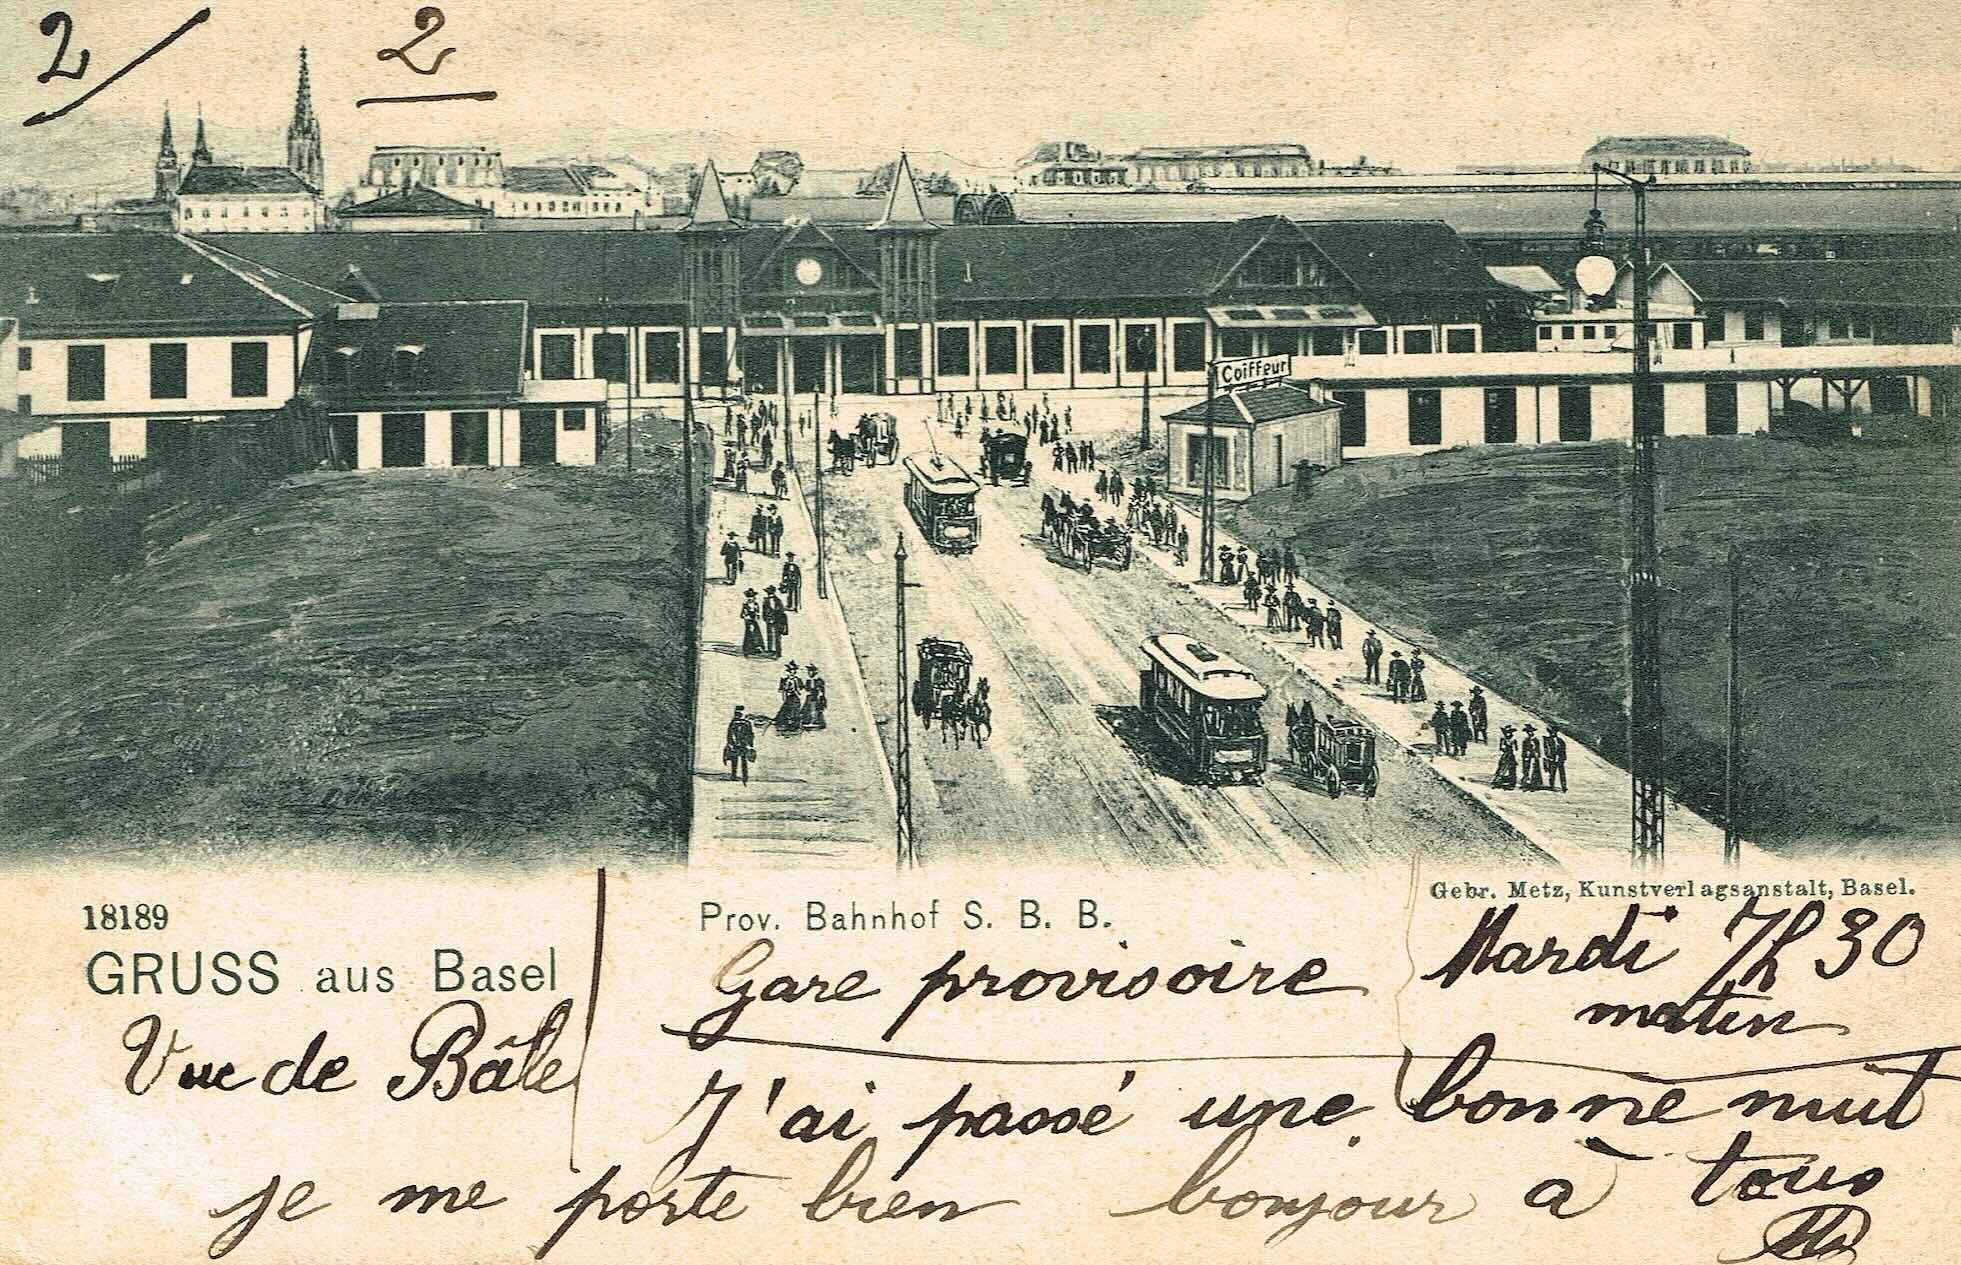 2/ 2
Coiffeur
18189
GRUSS aus Basel
Prov. Bahnhof S. B. B.
Gebr. Metz, Kunstverlagsanstalt, Basel.
Vue de Bâle
Gare provisoire
Mardi 7h 30
matin
J'ai passé une bonne nuit
je me porte bien bonjour à tous